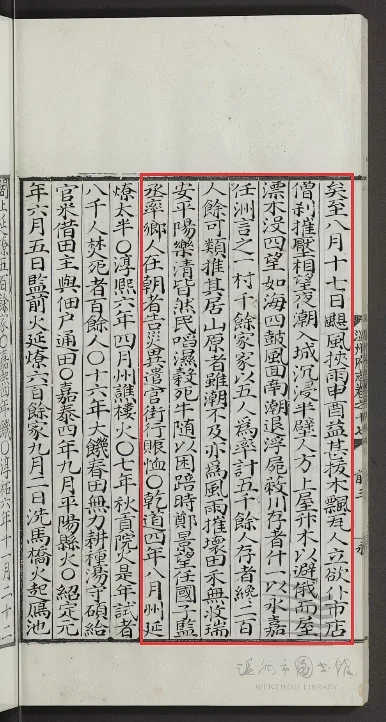 矣至八月十七日颶風挾雨申酉益甚拔木飄瓦人立欲仆市店
僧刹摧壓相望夜潮入城沉浸半壁人方上屋升木以避俄而屋
漂木没四望如海四鼓風囬南潮退浮屍蔽川存者什一以永嘉
任洲言之一村千餘家家以五人為率計五千餘人存者纔二百
人餘可類推其居山原者雖潮不及亦為風雨摧壞田禾無收瑞
安平陽樂清皆然民啗濕穀死牛隨以困踣時鄭景望任國子監
丞率鄉人在朝者言災異遣官街行賑恤〇乾道四年八月州延
燎太半〇淳熙六年四月州譙樓火〇七年秋貢院火是年試者
八千人焚死者百餘人〇十六年大饑春田無力耕種蕩守碩給
官米借田主與佃户通田〇嘉泰四年九月平陽縣火〇紹定元
年六月五日監前火延燎六百餘家九月二日洗馬橋火起鴈池
温州府志卷之十七
温州市圖书館
WENZHOU LIBRARY